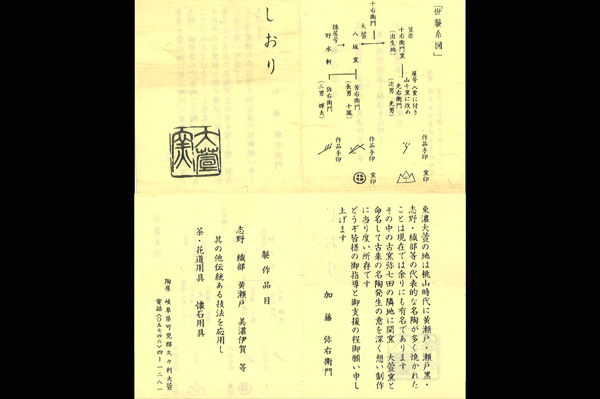 「世襲系図」
笠原
十右衛門窯
(出生地)
屋号八重に付き
山十窯に改め
光右衛門
(次男 光男)
十右衛門
大萱
八坂窯
弥右衛門
(長男 十郎)
穂居号
野水軒
弥右衛門
(三男 輝夫)
作品手印
窯印
作品手印
窯印
作品手印
しおり
大萱窯
東濃大萱の地は桃山時代に黄瀬戸・瀬戸黒・
志野・織部等の代表的な名陶が多く焼かれた
ことは現在では余りにも有名であります
その中の古窯弥七田の隣地に開窯 大萱窯と
命名して古来の名陶発生の意を深く想い制作
に当り度い所存です
どうぞ皆様の御指導と御支援の程御願い申し
上げます
加藤 弥右衛門
製作品目
志野 織部 黄瀬戸 美濃伊賀 等
其の他伝統ある技法を応用し
茶・花道用具 懐石用具
陶房 岐阜県可児郡久々利大萱
電話(〇五七四六)四-一二八一